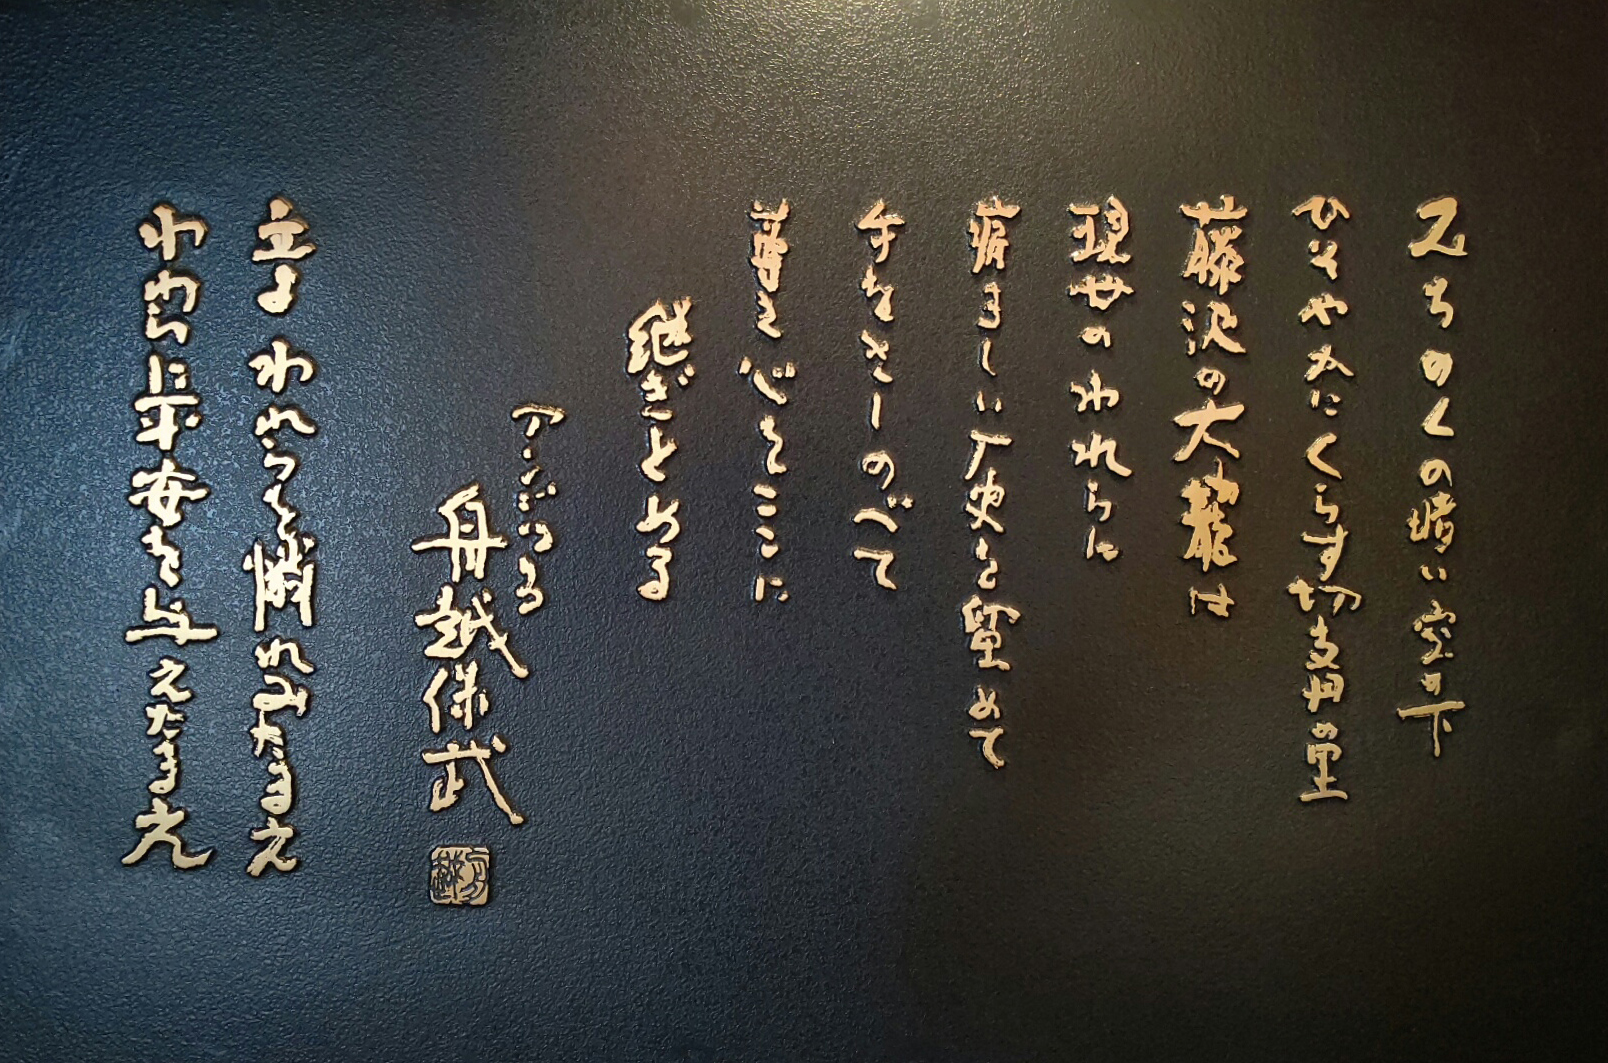 みちのくの暗い空の下
ひそやかにくらす切支丹の里
藤沢の大籠は
現世のわれらに
痛ましい歴史を留めて
手をさしのべて
尊き心をここに
継ぎとめる
舟越保武
舟越
主よ われらを憐れみたまえ
われらに平安を与えたまえ